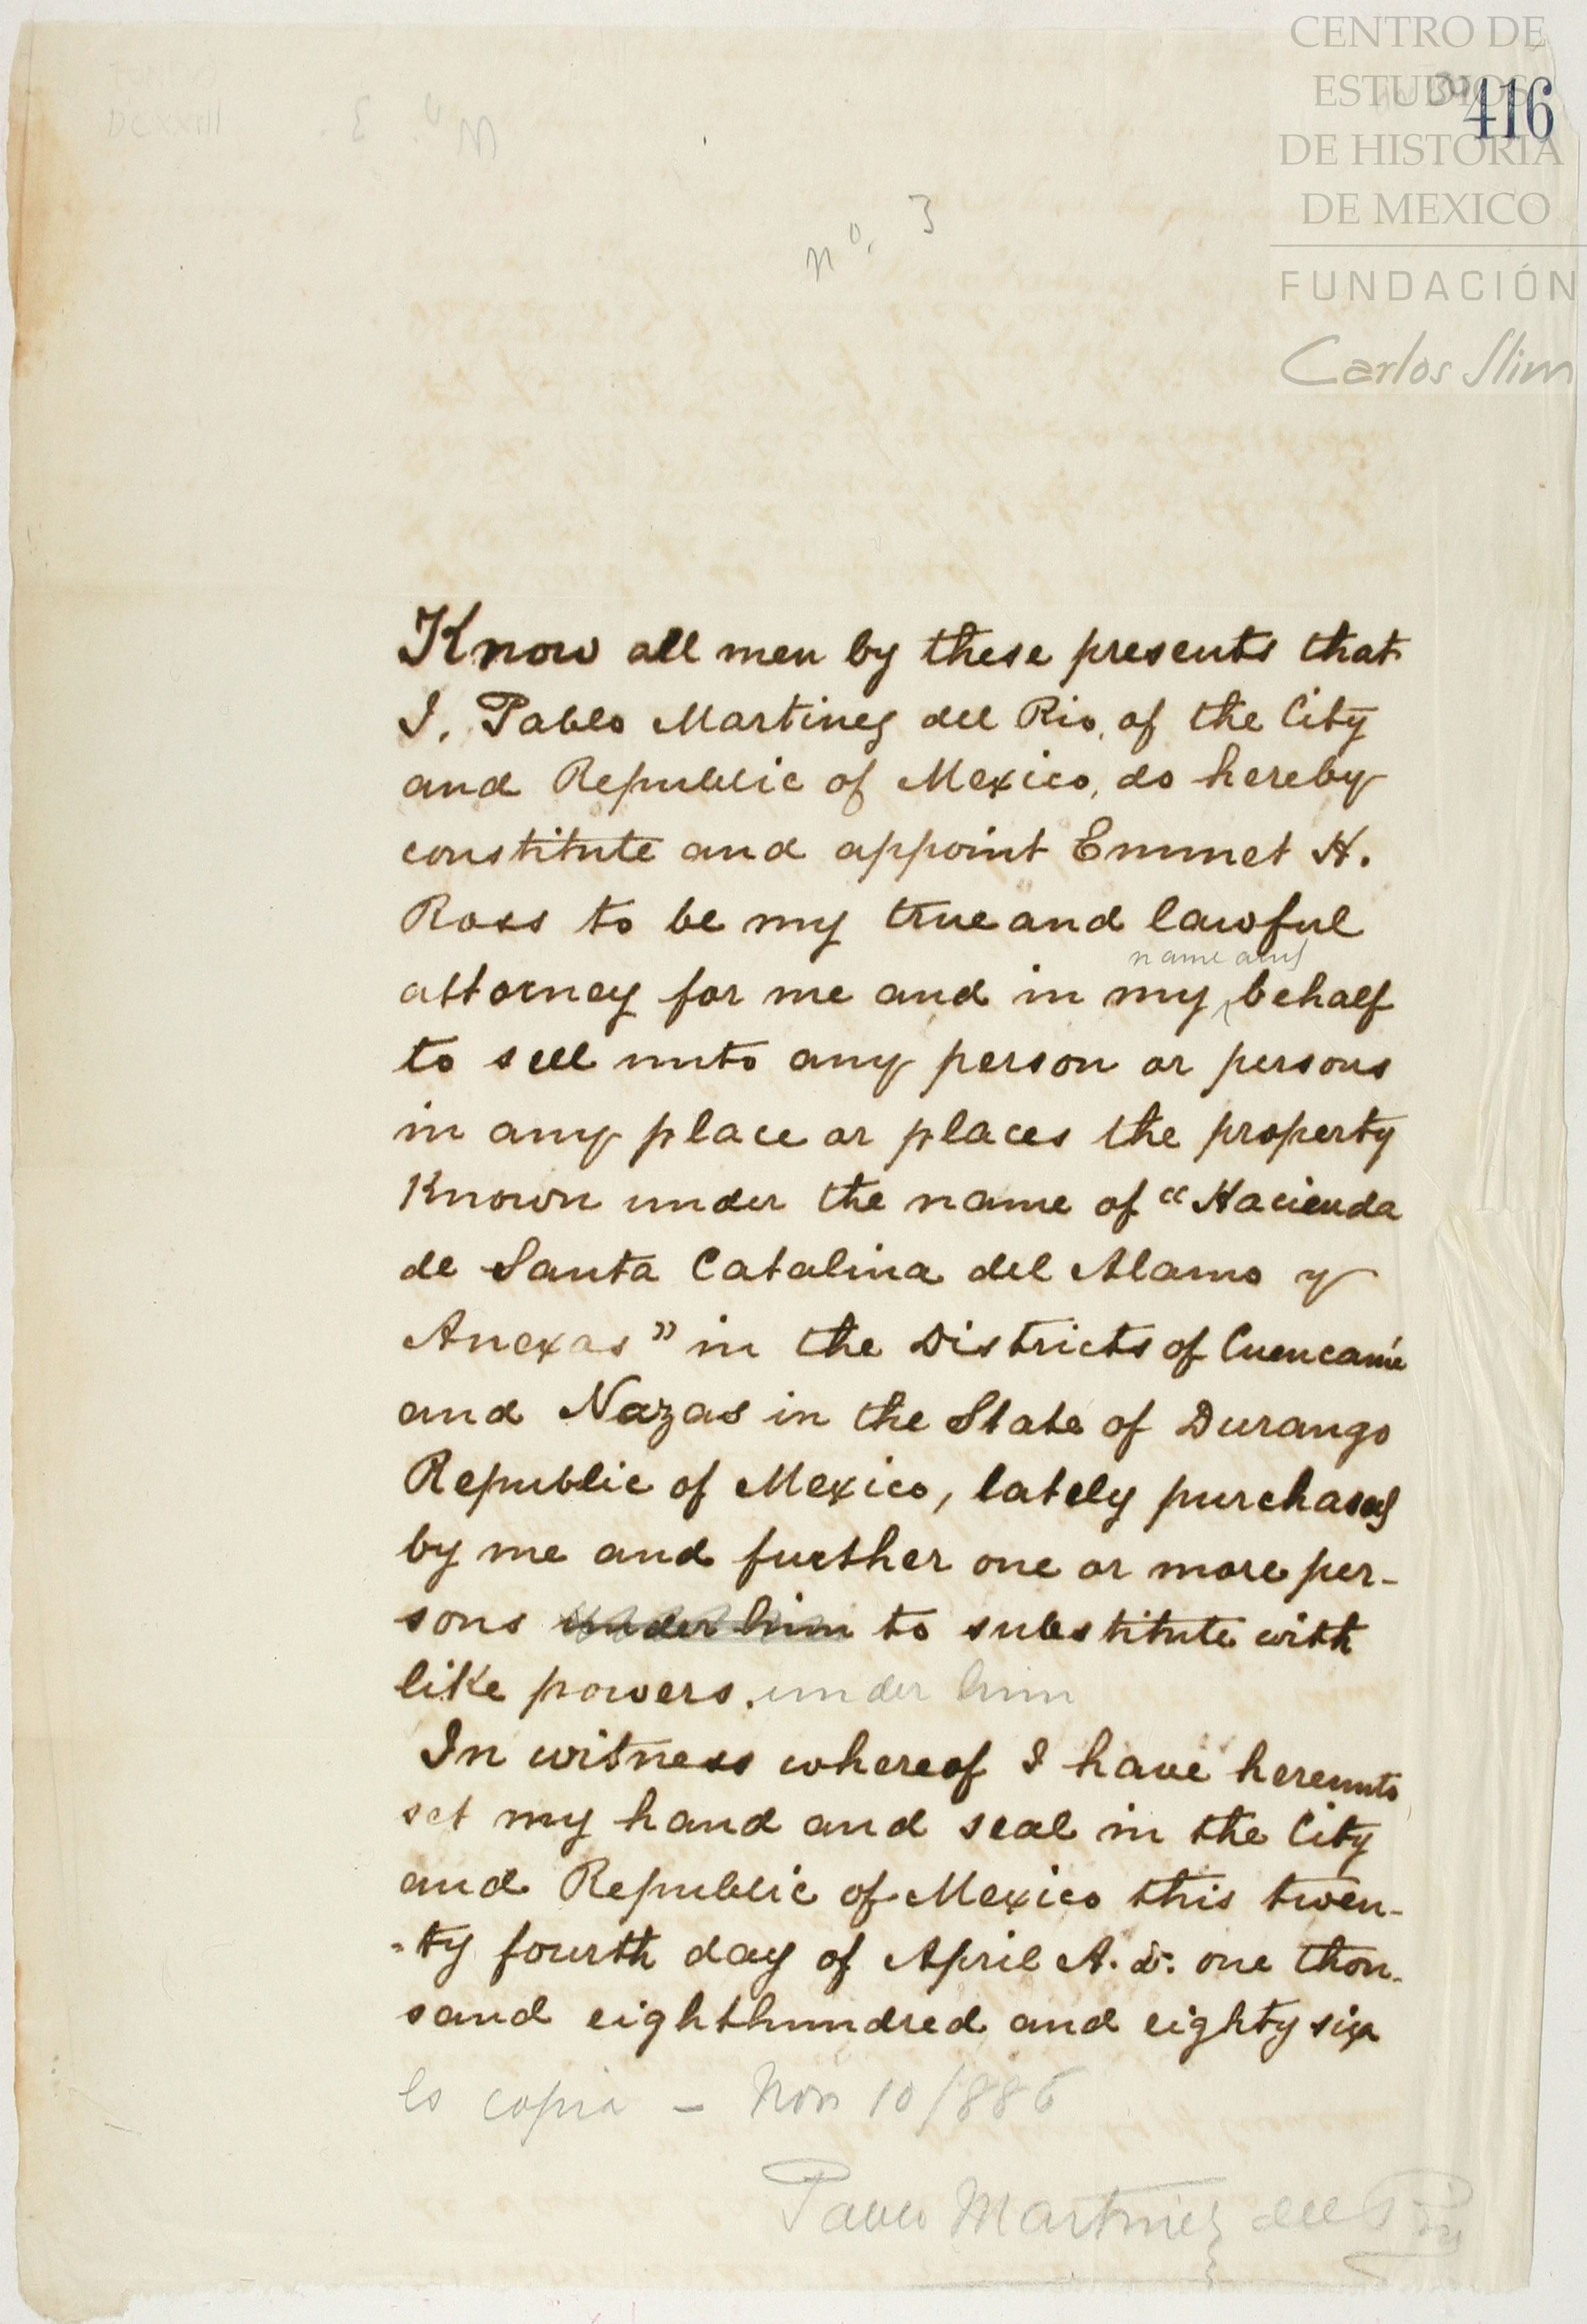 CENTRO DE
ESTUDIOS
DE HISTORIA
DE MEXICO
FUNDACIÓN
Carlos Slim
416
DCXXIII
No. 3
no. 3
Know all men by these presents that
I, Pablo Martinez del Rio, of the City
and Republic of Mexico, do hereby
constitute and appoint Emmet H.
Ross to be my true and lawful
name and
attorney for me and in my behalf
to sell unto any person or persons
in any place or places the property
Known under the name of "Hacienda
de Santa Catalina del Alamo y
Anexas" in the Districts of Cuencamé
and Nazas in the State of Durango
Republic of Mexico, lately purchased
by me and further one or more per-
sons under him to substitute with
like powers. under him
In witness whereof I have hereunto
set my hand and seal in the City
and Republic of Mexico this twen-
-ty fourth day of April A.D. one thou-
sand eighthundred and eighty six
Es copia - Nov 10/886
Pablo Martinez del Rio